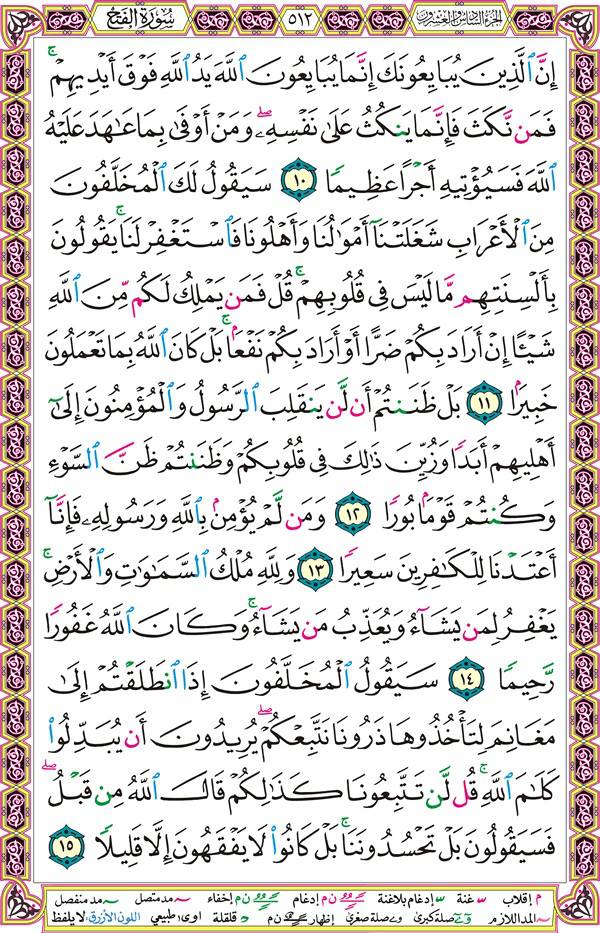 الجزء السادس والعشرون
٥١٢
سورة الفتح
إِنَّ ٱلَّذِينَ يُبَايِعُونَكَ إِنَّمَا يُبَايِعُونَ ٱللَّهَ يَدُ ٱللَّهِ فَوْقَ أَيْدِيهِمْ ۚ
فَمَن نَّكَثَ فَإِنَّمَا يَنكُثُ عَلَىٰ نَفْسِهِۦ ۖ وَمَنْ أَوْفَىٰ بِمَا عَـٰهَدَ عَلَيْهُ
ٱللَّهَ فَسَيُؤْتِيهِ أَجْرًا عَظِيمًا ١٠ سَيَقُولُ لَكَ ٱلْمُخَلَّفُونَ
مِنَ ٱلْأَعْرَابِ شَغَلَتْنَآ أَمْوَٰلُنَا وَأَهْلُونَا فَٱسْتَغْفِرْ لَنَا ۚ يَقُولُونَ
بِأَلْسِنَتِهِم مَّا لَيْسَ فِى قُلُوبِهِمْ ۚ قُلْ فَمَن يَمْلِكُ لَكُم مِّنَ ٱللَّهِ
شَيْـًٔا إِنْ أَرَادَ بِكُمْ ضَرًّا أَوْ أَرَادَ بِكُمْ نَفْعًۢا ۚ بَلْ كَانَ ٱللَّهُ بِمَا تَعْمَلُونَ
خَبِيرًۢا ١١ بَلْ ظَنَنتُمْ أَن لَّن يَنقَلِبَ ٱلرَّسُولُ وَٱلْمُؤْمِنُونَ إِلَىٰٓ
أَهْلِيهِمْ أَبَدًا وَزُيِّنَ ذَٰلِكَ فِى قُلُوبِكُمْ وَظَنَنتُمْ ظَنَّ ٱلسَّوْءِ
وَكُنتُمْ قَوْمًۢا بُورًا ١٢ وَمَن لَّمْ يُؤْمِنۢ بِٱللَّهِ وَرَسُولِهِۦ فَإِنَّآ
أَعْتَدْنَا لِلْكَـٰفِرِينَ سَعِيرًا ١٣ وَلِلَّهِ مُلْكُ ٱلسَّمَـٰوَٰتِ وَٱلْأَرْضِ ۚ
يَغْفِرُ لِمَن يَشَآءُ وَيُعَذِّبُ مَن يَشَآءُ ۚ وَكَانَ ٱللَّهُ غَفُورًا
رَّحِيمًا ١٤ سَيَقُولُ ٱلْمُخَلَّفُونَ إِذَا ٱنطَلَقْتُمْ إِلَىٰ
مَغَانِمَ لِتَأْخُذُوهَا ذَرُونَا نَتَّبِعْكُمْ ۖ يُرِيدُونَ أَن يُبَدِّلُوا۟
كَلَـٰمَ ٱللَّهِ ۚ قُل لَّن تَتَّبِعُونَا كَذَٰلِكُمْ قَالَ ٱللَّهُ مِن قَبْلُ ۖ
فَسَيَقُولُونَ بَلْ تَحْسُدُونَنَا ۚ بَلْ كَانُوا۟ لَا يَفْقَهُونَ إِلَّا قَلِيلًا ١٥
م إقلاب غنة إدغام بلاغنة ن م إدغام ن م إخفاء مد متصل مد منفصل
المد اللازم صلة كبرى صلة صغرى إظهار ن م قلقلة اوى طبيعي اللون الأزرق لا يلفظ